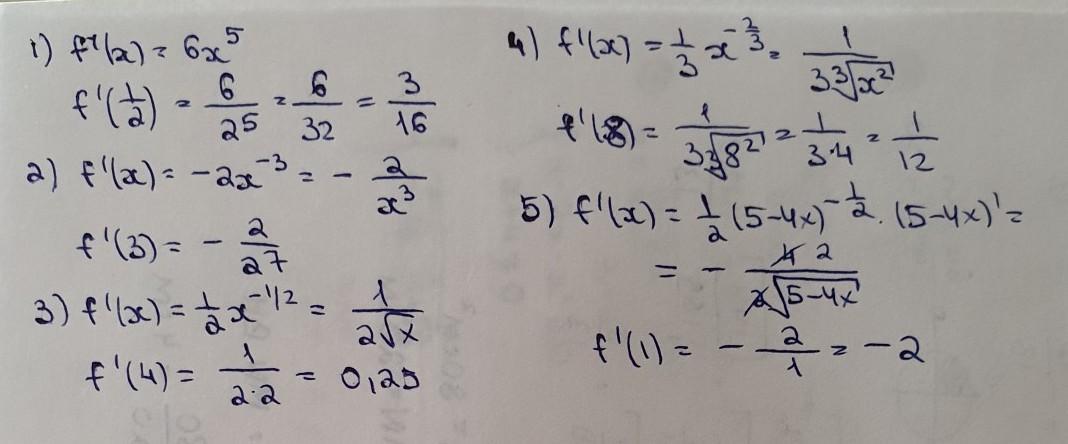 1) f'(x) = 6x⁵
f'(1/2) = 6/2⁵ = 6/32 = 3/16
2) f'(x) = -2x⁻³ = - 2/x³
f'(3) = - 2/27
3) f'(x) = 1/2 x^(-1/2) = 1/(2√x)
f'(4) = 1/(2·2) = 0,25
4) f'(x) = 1/3 x^(-2/3) = 1/(3∛(x²))
f'(8) = 1/(3∛(8²)) = 1/(3·4) = 1/12
5) f'(x) = 1/2 (5-4x)^(-1/2) · (5-4x)' =
= - 4 2/(2√(5-4x))
f'(1) = - 2/1 = -2